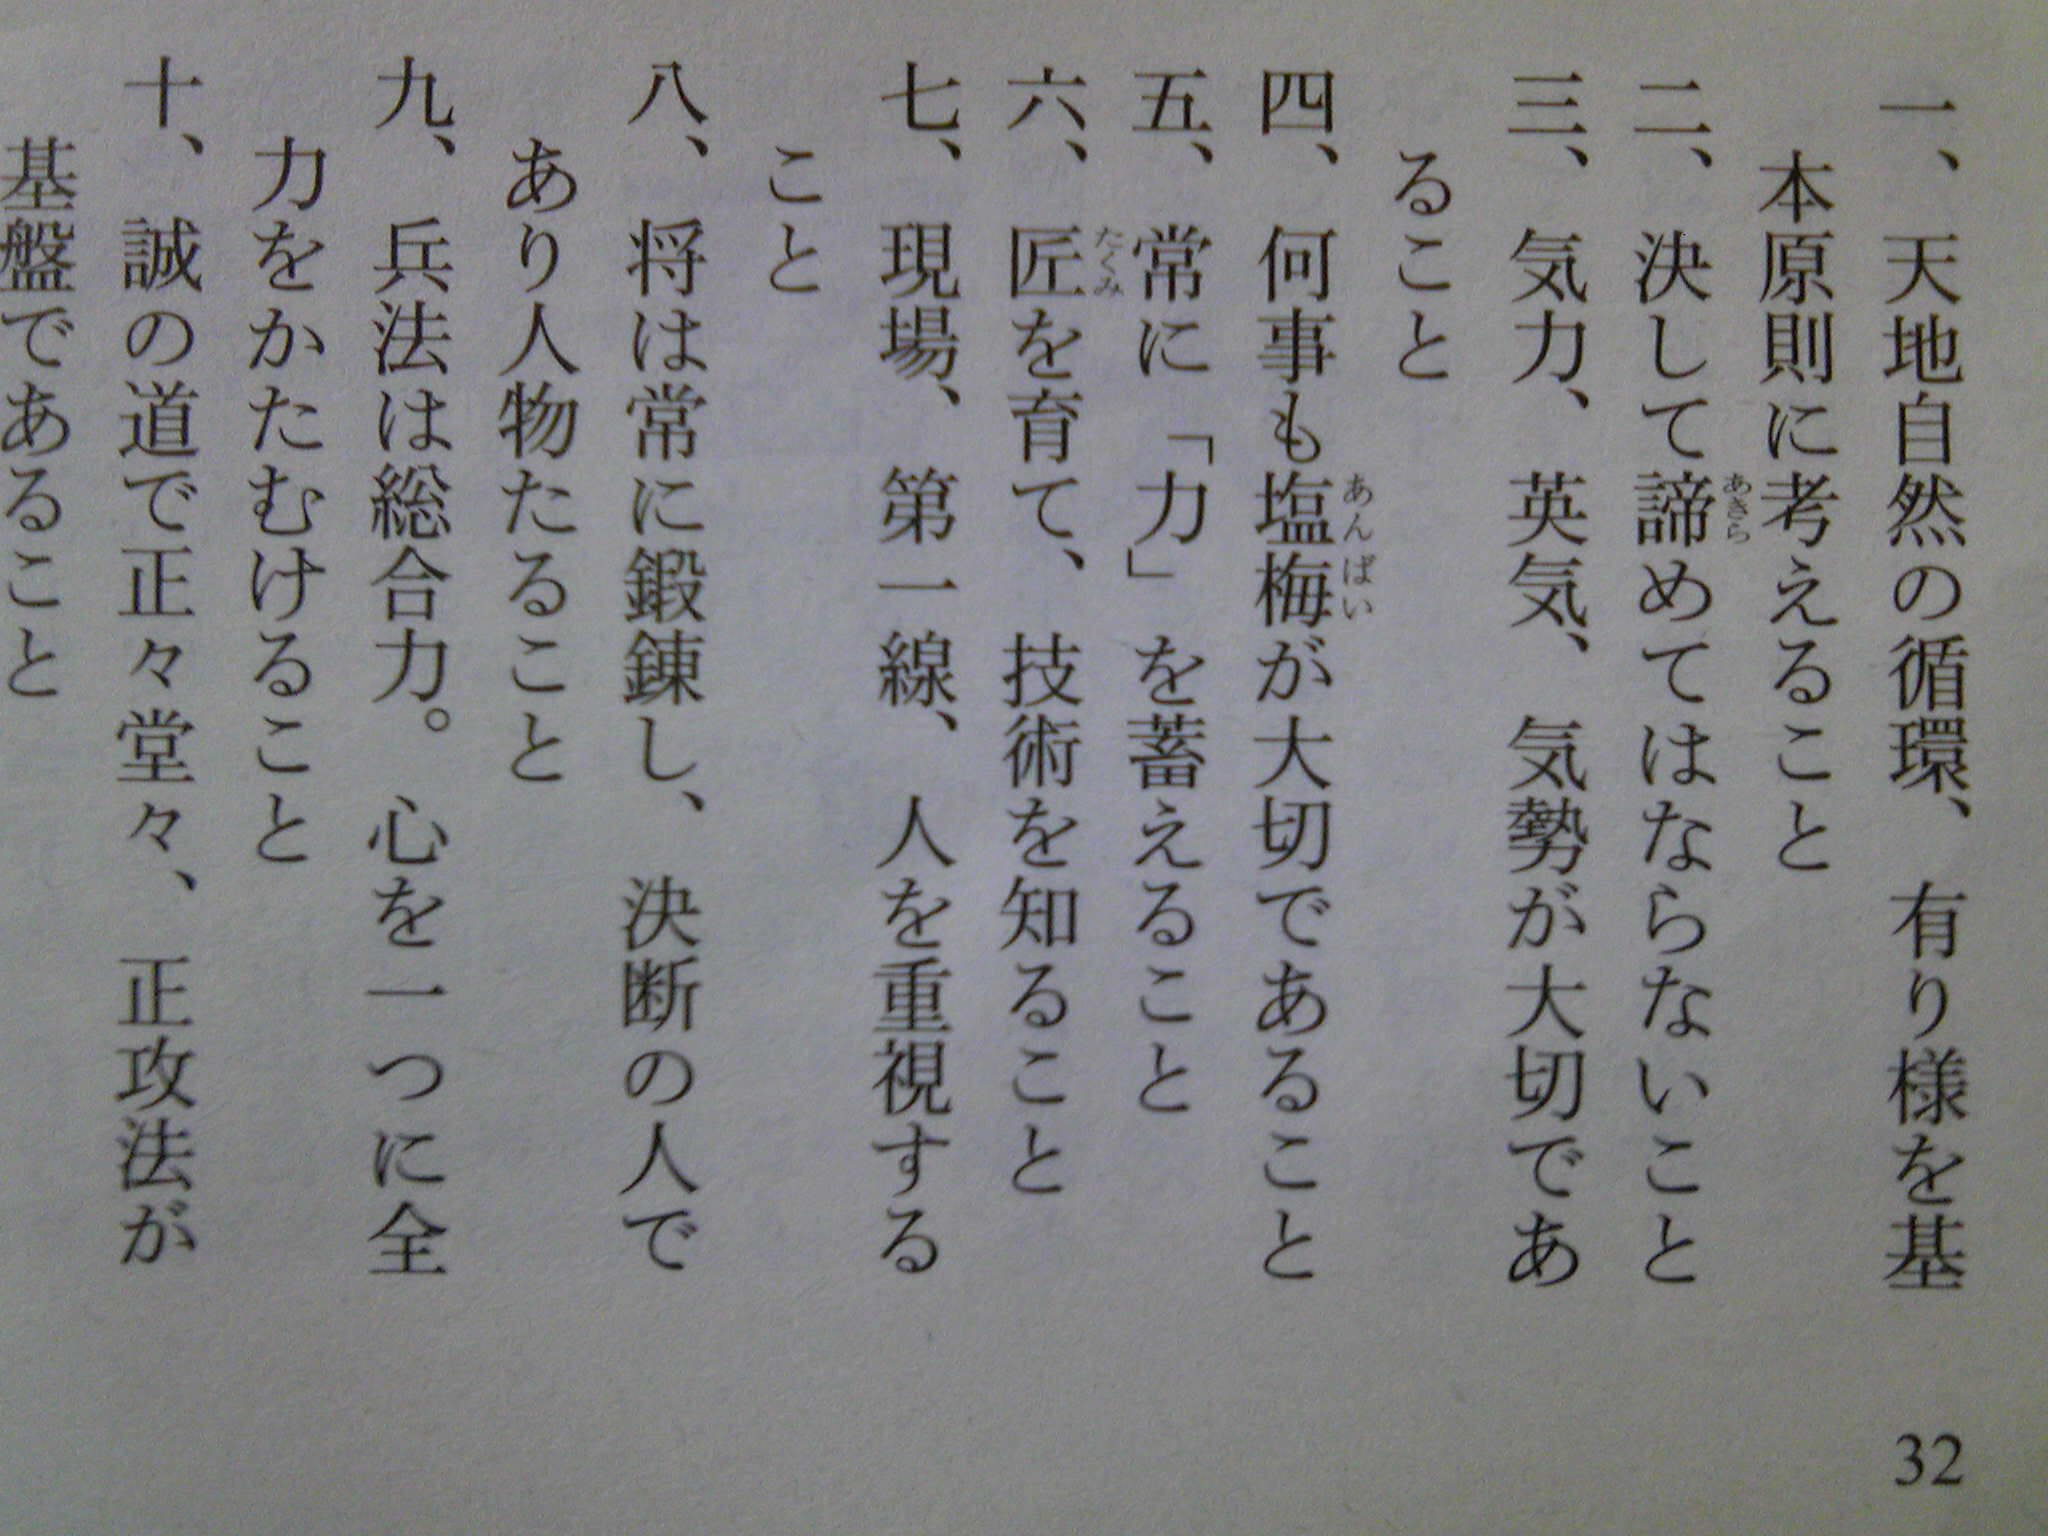 一、天地自然の循環、有り様を基
本原則に考えること
二、決して諦めてはならないこと
あきら
三、気力、英気、気勢が大切であ
ること
四、何事も塩梅が大切であること
あんばい
五、常に「力」を蓄えること
六、匠を育て、技術を知ること
たくみ
七、現場、第一線、人を重視する
こと
八、将は常に鍛錬し、決断の人で
あり人物たること
九、兵法は総合力。心を一つに全
力をかたむけること
十、誠の道で正々堂々、正攻法が
基盤であること
32